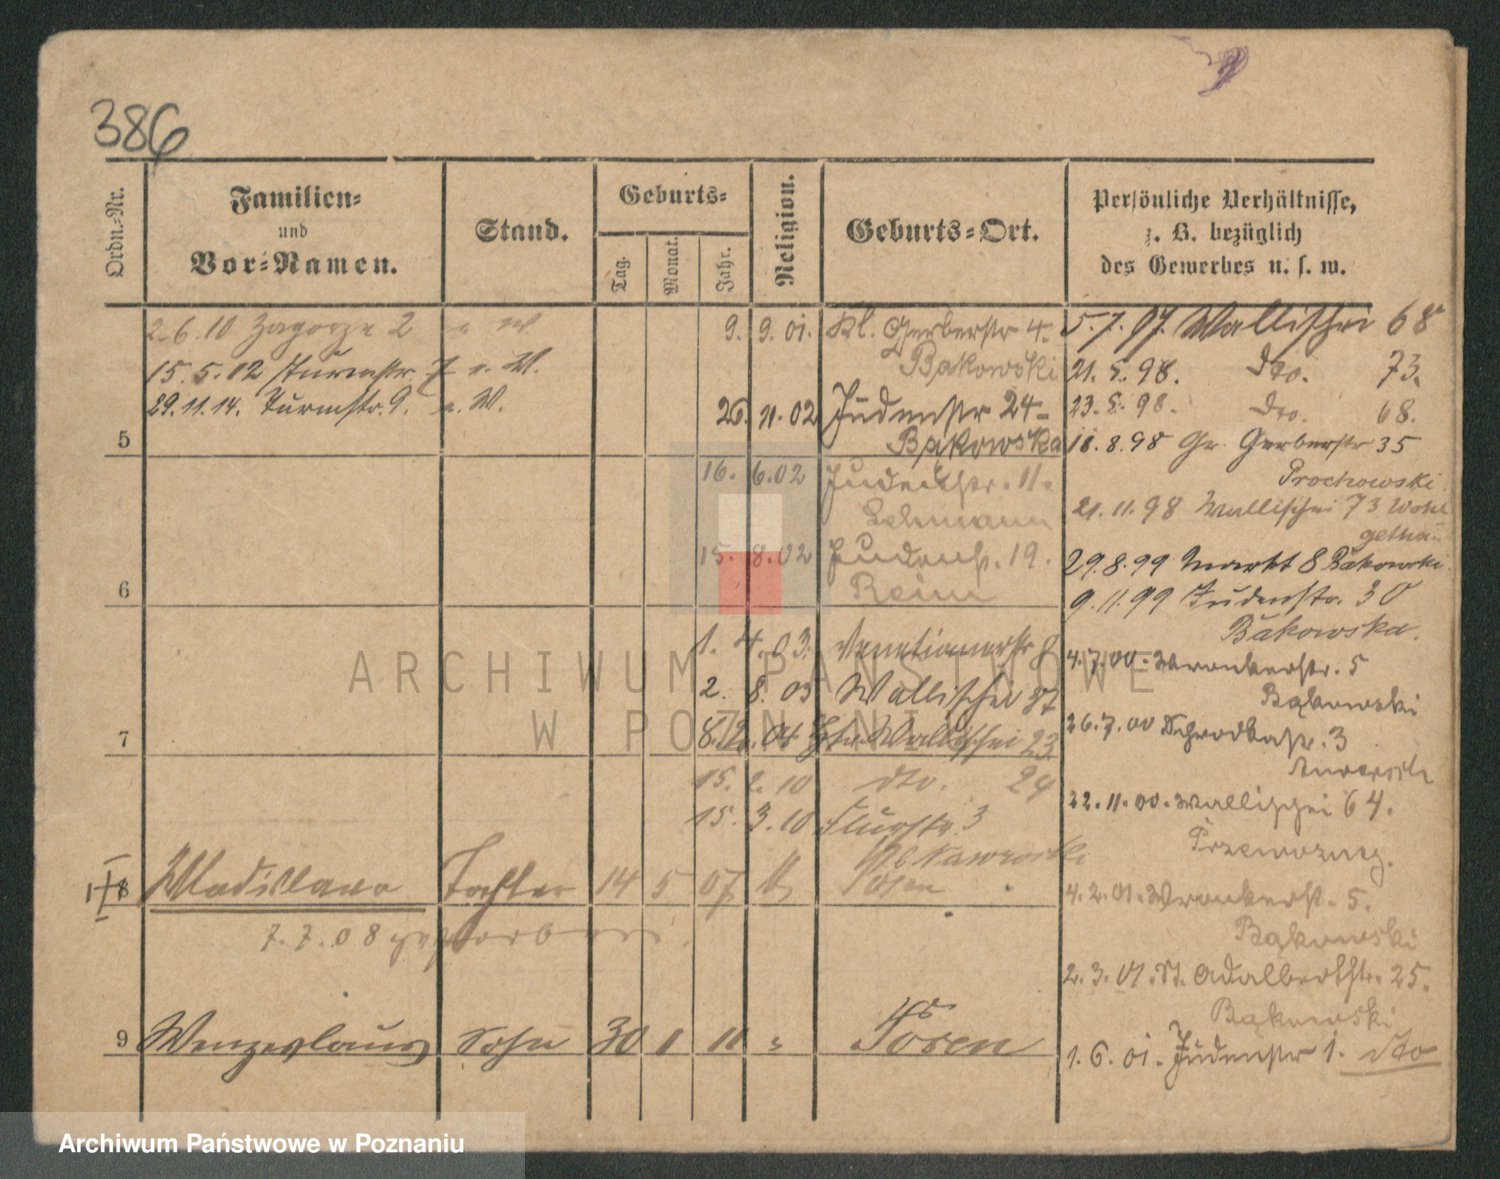 386
Ordn.-Nr.
Familien-
und
Vor-Namen.
Stand.
Geburts-
Tag.
Monat.
Jahr.
Religion.
Geburts-Ort.
Persönliche Verhältnisse,
z. B. bezüglich
des Gewerbes u. s. w.
2.6.10 Zagorze 2
15.5.12 Turmstr. 7
29.11.14. Turmstr. 9.
5
6
7
9. 9. 01. Kl. Gerberstr 4.
Bakowski
26. 11. 02 Judenstr 24
Bąkowska
16. 6.02 Judenstr. 11.
Lehmann
15. 8.02 Judenstr. 19.
Reim
1. 4.03. Venetianerstr 8
2. 8. 03 Wallischei 37
8.12.04 Wallischei 23
15. 2. 10 dto. 24
15. 3. 10 Flurstr. 3
Nawrocki
8 Wladislawa Tochter 14 5 07 Posen
7. 7. 08 gestorben.
9 Wenzeslaus Sohn 30 1 11 " Posen
5.7.97. Wallischei 68
21. 5. 98. dto. 73.
23. 8. 98. dto. 68.
18. 8. 98 Gr. Gerberstr 35
Prochowski.
21. 11. 98 Wallischei 73
29.8.99 Markt 8 Bakowski
9. 11. 99 Judenstr. 30
Bakowska.
4.7.00. Wronkerstr. 5
Bąkowski
26.7.00 Schrodkastr. 3
22. 11. 00. Wallischei 64.
Przewozny.
4. 2. 01. Wronkerstr. 5.
Bąkowski
2. 3. 01. St. Adalbertstr. 25.
Bąkowski
1. 6. 01. Judenstr 1. dto
ARCHIWUM PAŃSTWOWE
W POZNANIU
Archiwum Państwowe w Poznaniu